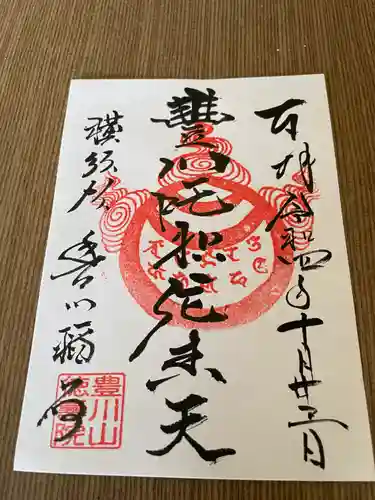 百拝 令和四年十月廿三日
豐川吒枳尼真天
横須賀 豊川稲荷
豊川山
徳壽院